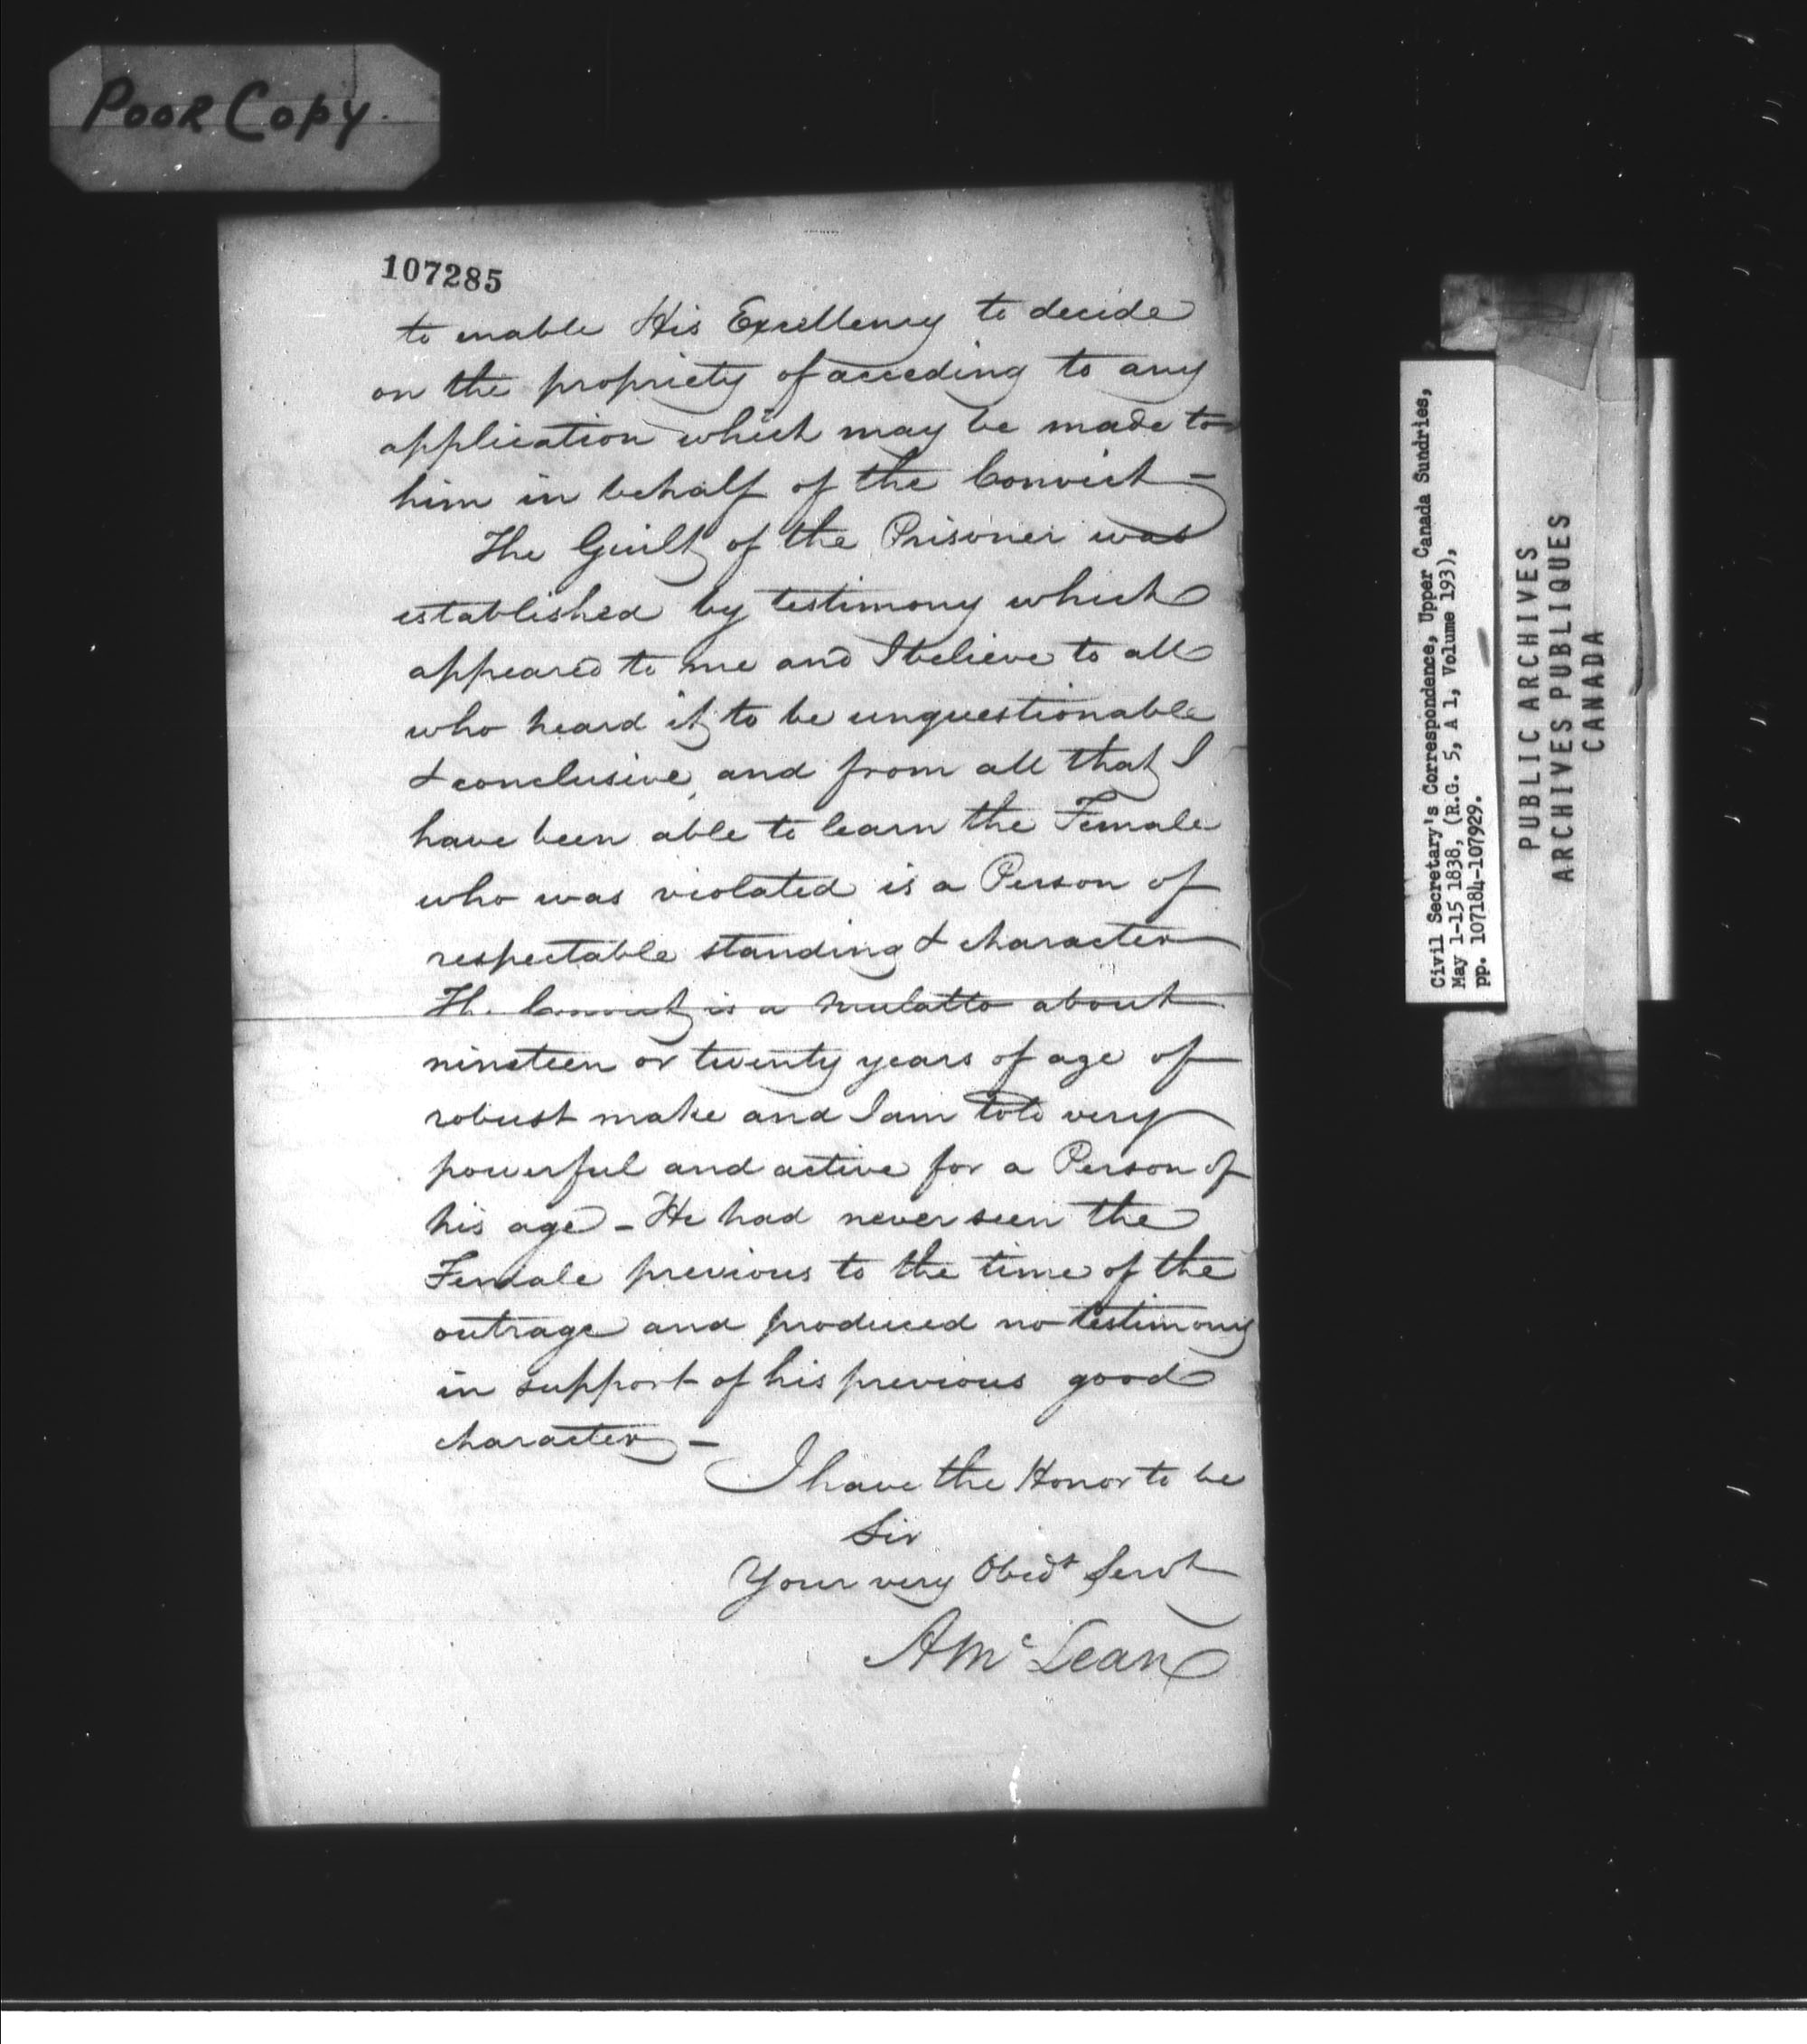 Poor Copy.
107285
to enable His Excellency to decide
on the propriety of acceding to any
application which may be made to
him in behalf of the Convict -
The Guilt of the Prisoner was
established by testimony which
appeared to me and I believe to all
who heard it to be unquestionable
& conclusive, and from all that I
have been able to learn the Female
who was violated is a Person of
respectable standing & character
The Convict is a Mulatto about
nineteen or twenty years of age of
robust make and I am told very
powerful and active for a Person of
his age - He had never seen the
Female previous to the time of the
outrage and produced no testimony
in support of his previous good
character -
I have the Honor to be
Sir
Your very Obedt Servt
A McLean
Civil Secretary's Correspondence, Upper Canada Sundries,
May 1-15 1838, (R.G. 5, A 1, Volume 193),
pp. 107184-107929.
PUBLIC ARCHIVES
ARCHIVES PUBLIQUES
CANADA